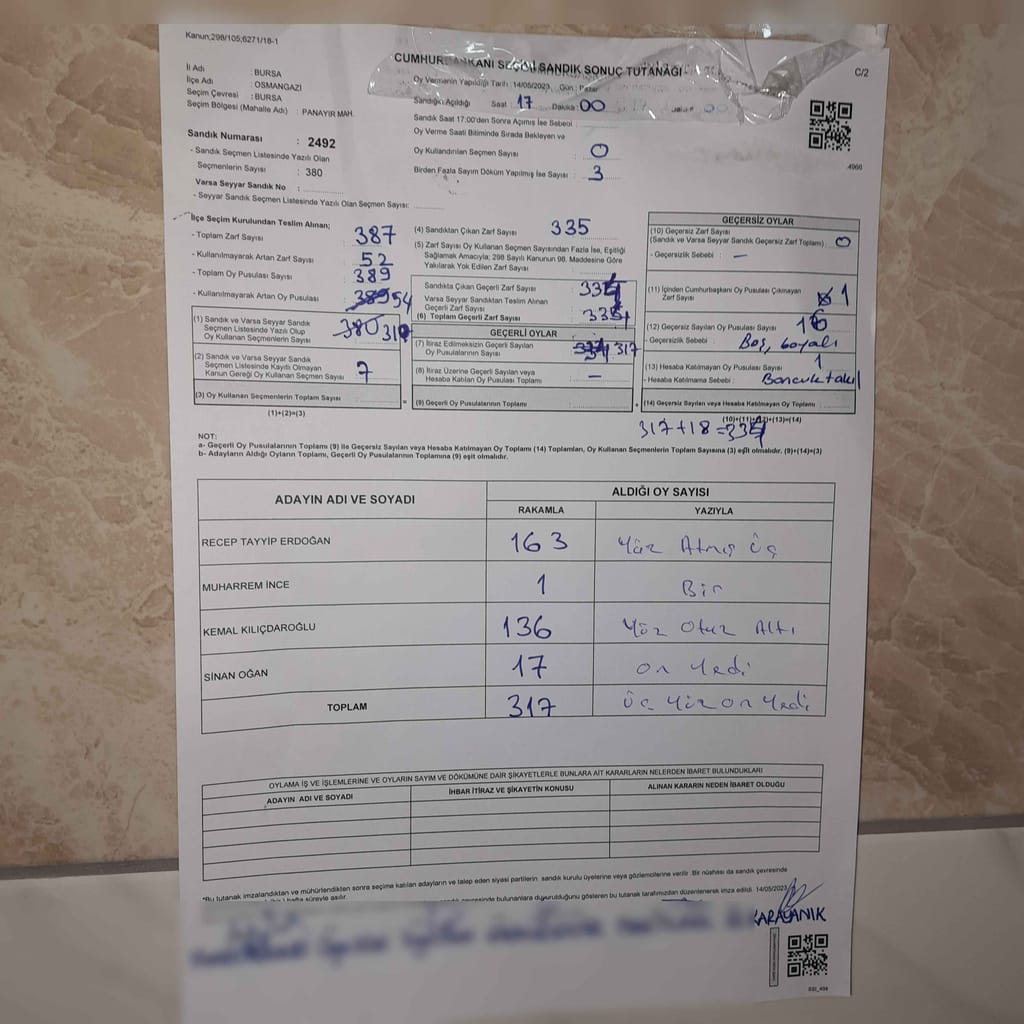 Kanun;298/105;6271/18-1
SANDIK SONUÇ TUTANAĞI
C/2
İl Adı : BURSA
İlçe Adı : OSMANGAZİ
Seçim Çevresi : BURSA
Seçim Bölgesi (Mahalle Adı) : PANAYIR MAH.
Sandık Numarası : 2492
- Sandık Seçmen Listesinde Yazılı Olan
Seçmenlerin Sayısı : 380
Varsa Seyyar Sandık No :
- Seyyar Sandık Seçmen Listesinde Yazılı Olan Seçmen Sayısı:
Oy Vermenin Yapıldığı Tarih: 14/05/2023 Gün : Pazar
Sandığın Açıldığı Saat 17 Dakika 00
Sandık Saat 17:00'den Sonra Açımış İse Sebebi :
Oy Verme Saati Bitiminde Sırada Bekleyen ve
Oy Kullandırılan Seçmen Sayısı : 0
Birden Fazla Sayım Döküm Yapılmış İse Sayısı : 3
4966
İlçe Seçim Kurulundan Teslim Alınan;
- Toplam Zarf Sayısı : 387
- Kullanılmayarak Artan Zarf Sayısı : 52
- Toplam Oy Pusulası Sayısı : 389
- Kullanılmayarak Artan Oy Pusulası : 54
(1) Sandık ve Varsa Seyyar Sandık
Seçmen Listesinde Yazılı Olup
Oy Kullanan Seçmenlerin Sayısı : 380
(2) Sandık ve Varsa Seyyar Sandık
Seçmen Listesinde Kayıtlı Olmayan
Kanun Gereği Oy Kullanan Seçmen Sayısı : 7
(3) Oy Kullanan Seçmenlerin Toplam Sayısı :
(1)+(2)=(3)
(4) Sandıktan Çıkan Zarf Sayısı : 335
(5) Zarf Sayısı Oy Kullanan Seçmen Sayısından Fazla İse, Eşitliği
Sağlamak Amacıyla; 298 Sayılı Kanunun 98. Maddesine Göre
Yakılarak Yok Edilen Zarf Sayısı :
Sandıkta Çıkan Geçerli Zarf Sayısı :
Varsa Seyyar Sandıktan Teslim Alınan
Geçerli Zarf Sayısı :
(6) Toplam Geçerli Zarf Sayısı :
GEÇERLİ OYLAR
(7) İtiraz Edilmeksizin Geçerli Sayılan
Oy Pusulalarının Sayısı : 317
(8) İtiraz Üzerine Geçerli Sayılan veya
Hesaba Katılan Oy Pusulası Toplamı : —
(9) Geçerli Oy Pusulalarının Toplamı :
GEÇERSİZ OYLAR
(10) Geçersiz Zarf Sayısı
(Sandık ve Varsa Seyyar Sandık Geçersiz Zarf Toplamı) : 0
- Geçersizlik Sebebi : —
(11) İçinden Cumhurbaşkanı Oy Pusulası Çıkmayan
Zarf Sayısı : 1
(12) Geçersiz Sayılan Oy Pusulası Sayısı : 16
- Geçersizlik Sebebi : Boş, boyalı
(13) Hesaba Katılmayan Oy Pusulası Sayısı : 1
- Hesaba Katılmama Sebebi :
(14) Geçersiz Sayılan veya Hesaba Katılmayan Oy Toplamı :
(10)+(11)+(12)+(13)=(14)
317+18=335
NOT:
a- Geçerli Oy Pusulalarının Toplamı (9) ile Geçersiz Sayılan veya Hesaba Katılmayan Oy Toplamı (14) Toplamları, Oy Kullanan Seçmenlerin Toplam Sayısına (3) eşit olmalıdır. (9)+(14)=(3)
b- Adayların Aldığı Oyların Toplamı, Geçerli Oy Pusulalarının Toplamına (9) eşit olmalıdır.
ADAYIN ADI VE SOYADI ALDIĞI OY SAYISI
RAKAMLA YAZIYLA
RECEP TAYYİP ERDOĞAN 163 Yüz Atmış üç
MUHARREM İNCE 1 Bir
KEMAL KILIÇDAROĞLU 136 Yüz Otuz Altı
SİNAN OĞAN 17 on Yedi
TOPLAM 317 üç Yüz on Yedi
OYLAMA İŞ VE İŞLEMLERİNE VE OYLARIN SAYIM VE DÖKÜMÜNE DAİR ŞİKAYETLERLE BUNLARA AİT KARARLARIN NELERDEN İBARET BULUNDUKLARI
ADAYIN ADI VE SOYADI İHBAR İTİRAZ VE ŞİKAYETİN KONUSU ALINAN KARARIN NEDEN İBARET OLDUĞU
*Bu tutanak imzalandıktan ve mühürlendikten sonra seçime katılan adayların ve talep eden siyasi partilerin sandık kurulu üyelerine veya gözlemcilerine verilir. Bir nüshası da sandık çevresinde
hafta süreyle asılır.
çevresinde bulunanlara duyurulduğunu gösteren bu tutanak tarafımızdan düzenlenerek imza edildi. 14/05/2023
KARAYANIK